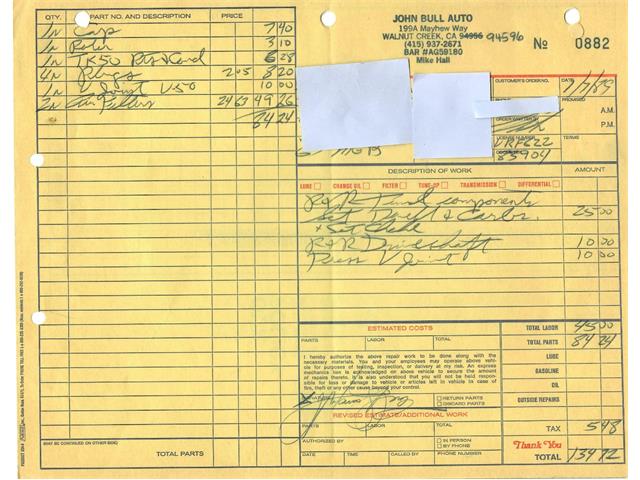 JOHN BULL AUTO
199A Mayhew Way
WALNUT CREEK, CA 94956 94596
(415) 937-2671
BAR #AG59180
Mike Hall
No 0882
QTY. PART NO. AND DESCRIPTION PRICE
1 Cap 7 40
1 Rotor 3 10
1 TK50 Pts + Cond 6 28
4 Plugs 2 05 8 20
1 U Joint U-50 10 00
2 Air Filters 24 63 49 26
84 24
CUSTOMER'S ORDER NO. DATE
PROMISED
A.M.
P.M.
LICENSE NUMBER TERMS
1VRF622
85904
DESCRIPTION OF WORK AMOUNT
LUBE CHANGE OIL FILTER TUNE-UP TRANSMISSION DIFFERENTIAL
R&R Tuneup components
Set Dwell & Carbs. 25 00
+ Set
R&R Driveshaft 10 00
Press U Joint 10 00
ESTIMATED COSTS
PARTS LABOR TOTAL
TOTAL LABOR 45 00
TOTAL PARTS 84 24
LUBE
GASOLINE
OIL
OUTSIDE REPAIRS
I hereby authorize the above repair work to be done along with the necessary materials. You and your employees may operate above vehicle for purposes of testing, inspection, or delivery at my risk. An express mechanics lien is acknowledged on above vehicle to secure the amount of repairs thereto. It is also understood that you will not be held responsible for loss or damage to vehicle or articles left in vehicle in case of fire, theft or any other cause beyond your control.
SIGNATURE
RETURN PARTS
DISCARD PARTS
REVISED ESTIMATE/ADDITIONAL WORK
PARTS LABOR TOTAL
AUTHORIZED BY
IN PERSON
BY PHONE
DATE TIME CALLED BY PHONE
TAX 5 48
Thank You
TOTAL 134 72
(MAY BE CONTINUED ON OTHER SIDE)
TOTAL PARTS